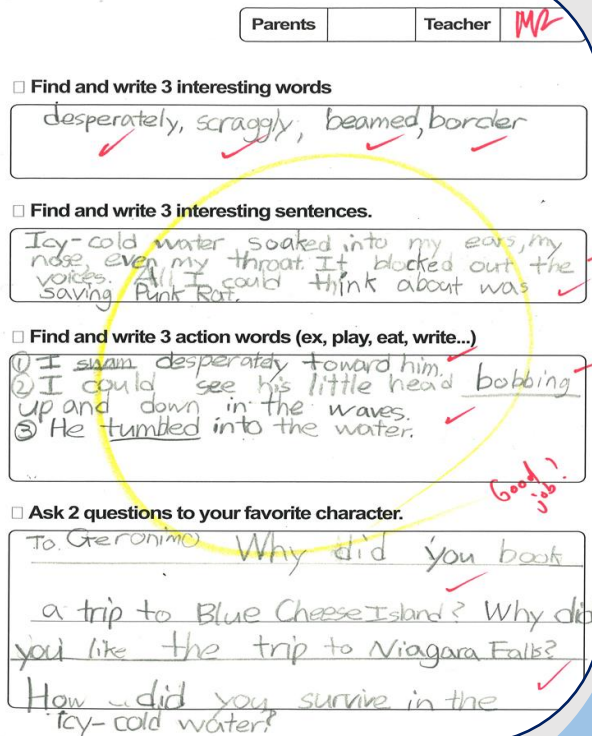 Parents Teacher
□ Find and write 3 interesting words
desperately, scraggly, beamed, border
□ Find and write 3 interesting sentences.
Icy-cold water soaked into my ears, my
nose, even my throat. It blocked out the
voices. All I could think about was
saving Punk Rat.
□ Find and write 3 action words (ex, play, eat, write...)
① I swam desperately toward him.
② I could see his little head bobbing
up and down in the waves.
③ He tumbled into the water.
Good job!
□ Ask 2 questions to your favorite character.
To. Geronimo Why did you book
a trip to Blue Cheese Island? Why did
you like the trip to Niagara Falls?
How did you survive in the
icy-cold water?